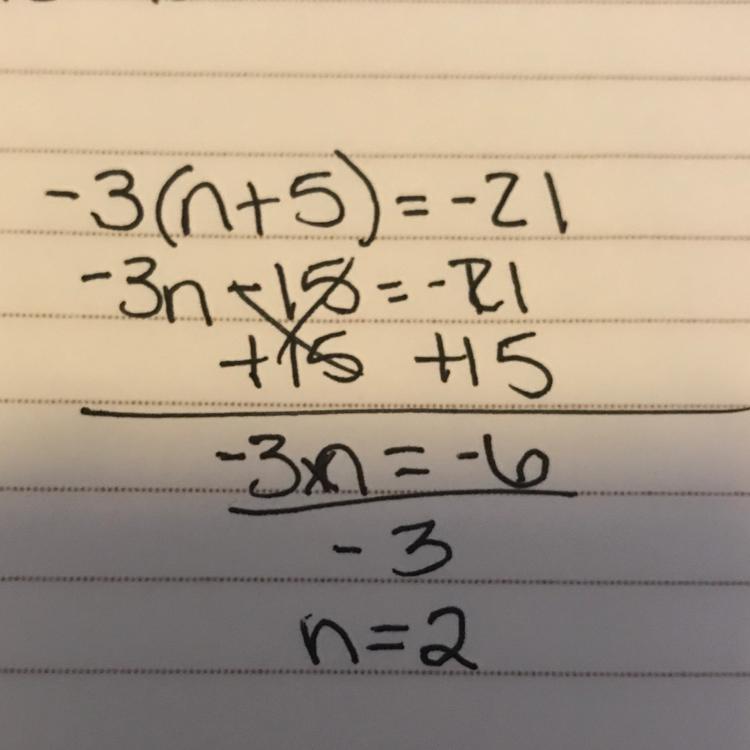 -3(n+5) = -21
-3n -15 = -21
+15 +15
-3n = -6
-3
n=2